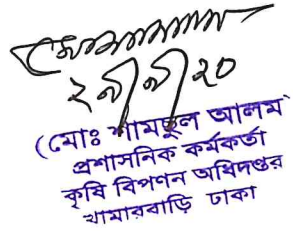 ২৯/৯/২০
(মোঃ শামছুল আলম)
প্রশাসনিক কর্মকর্তা
কৃষি বিপণন অধিদপ্তর
খামারবাড়ি ঢাকা